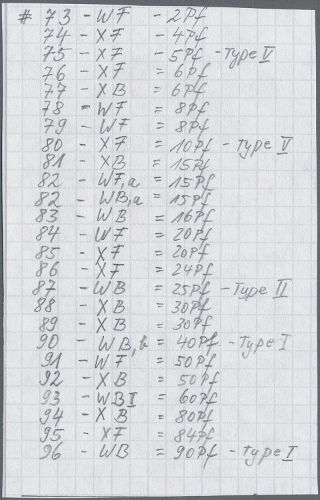 # 73 - WF - 2Pf
74 - XF - 4Pf
75 - XF - 5Pf - Type V
76 - XF = 6Pf
77 - XB = 6Pf
78 - WF = 8Pf
79 - WF = 8Pf
80 - XF = 10Pf - type V
81 - XB = 15Pf
82 - WF,a = 15Pf
82 - WB,a = 15Pf
83 - WB = 16Pf
84 - WF = 20Pf
85 - XF = 20Pf
86 - XF = 24Pf
87 - WB = 25Pf - Type II
88 - XB = 30Pf
89 - XB = 30Pf
90 - WB,b = 40Pf - Type I
91 - WF = 50Pf
92 - XB = 50Pf
93 - WBI = 60Pf
94 - XB = 80Pf
95 - XF = 84Pf
96 - WB = 90Pf - type I